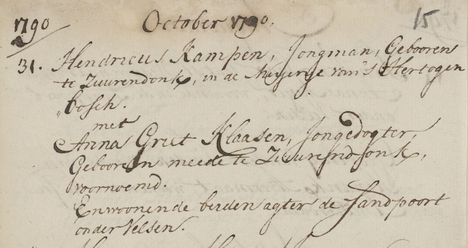 1790 October 1790. 15
31. Hendricus Kampen, Jongman, Geboorens
te Zuurendonk, in de Meijerije van 's Hertogen
bosch.
met
Anna Griet Klaasen, Jongedogter,
Gebooren meede te Zuurendonk,
voornoemd.
En woonende beiden agter de Sandpoort
onder Velsen.